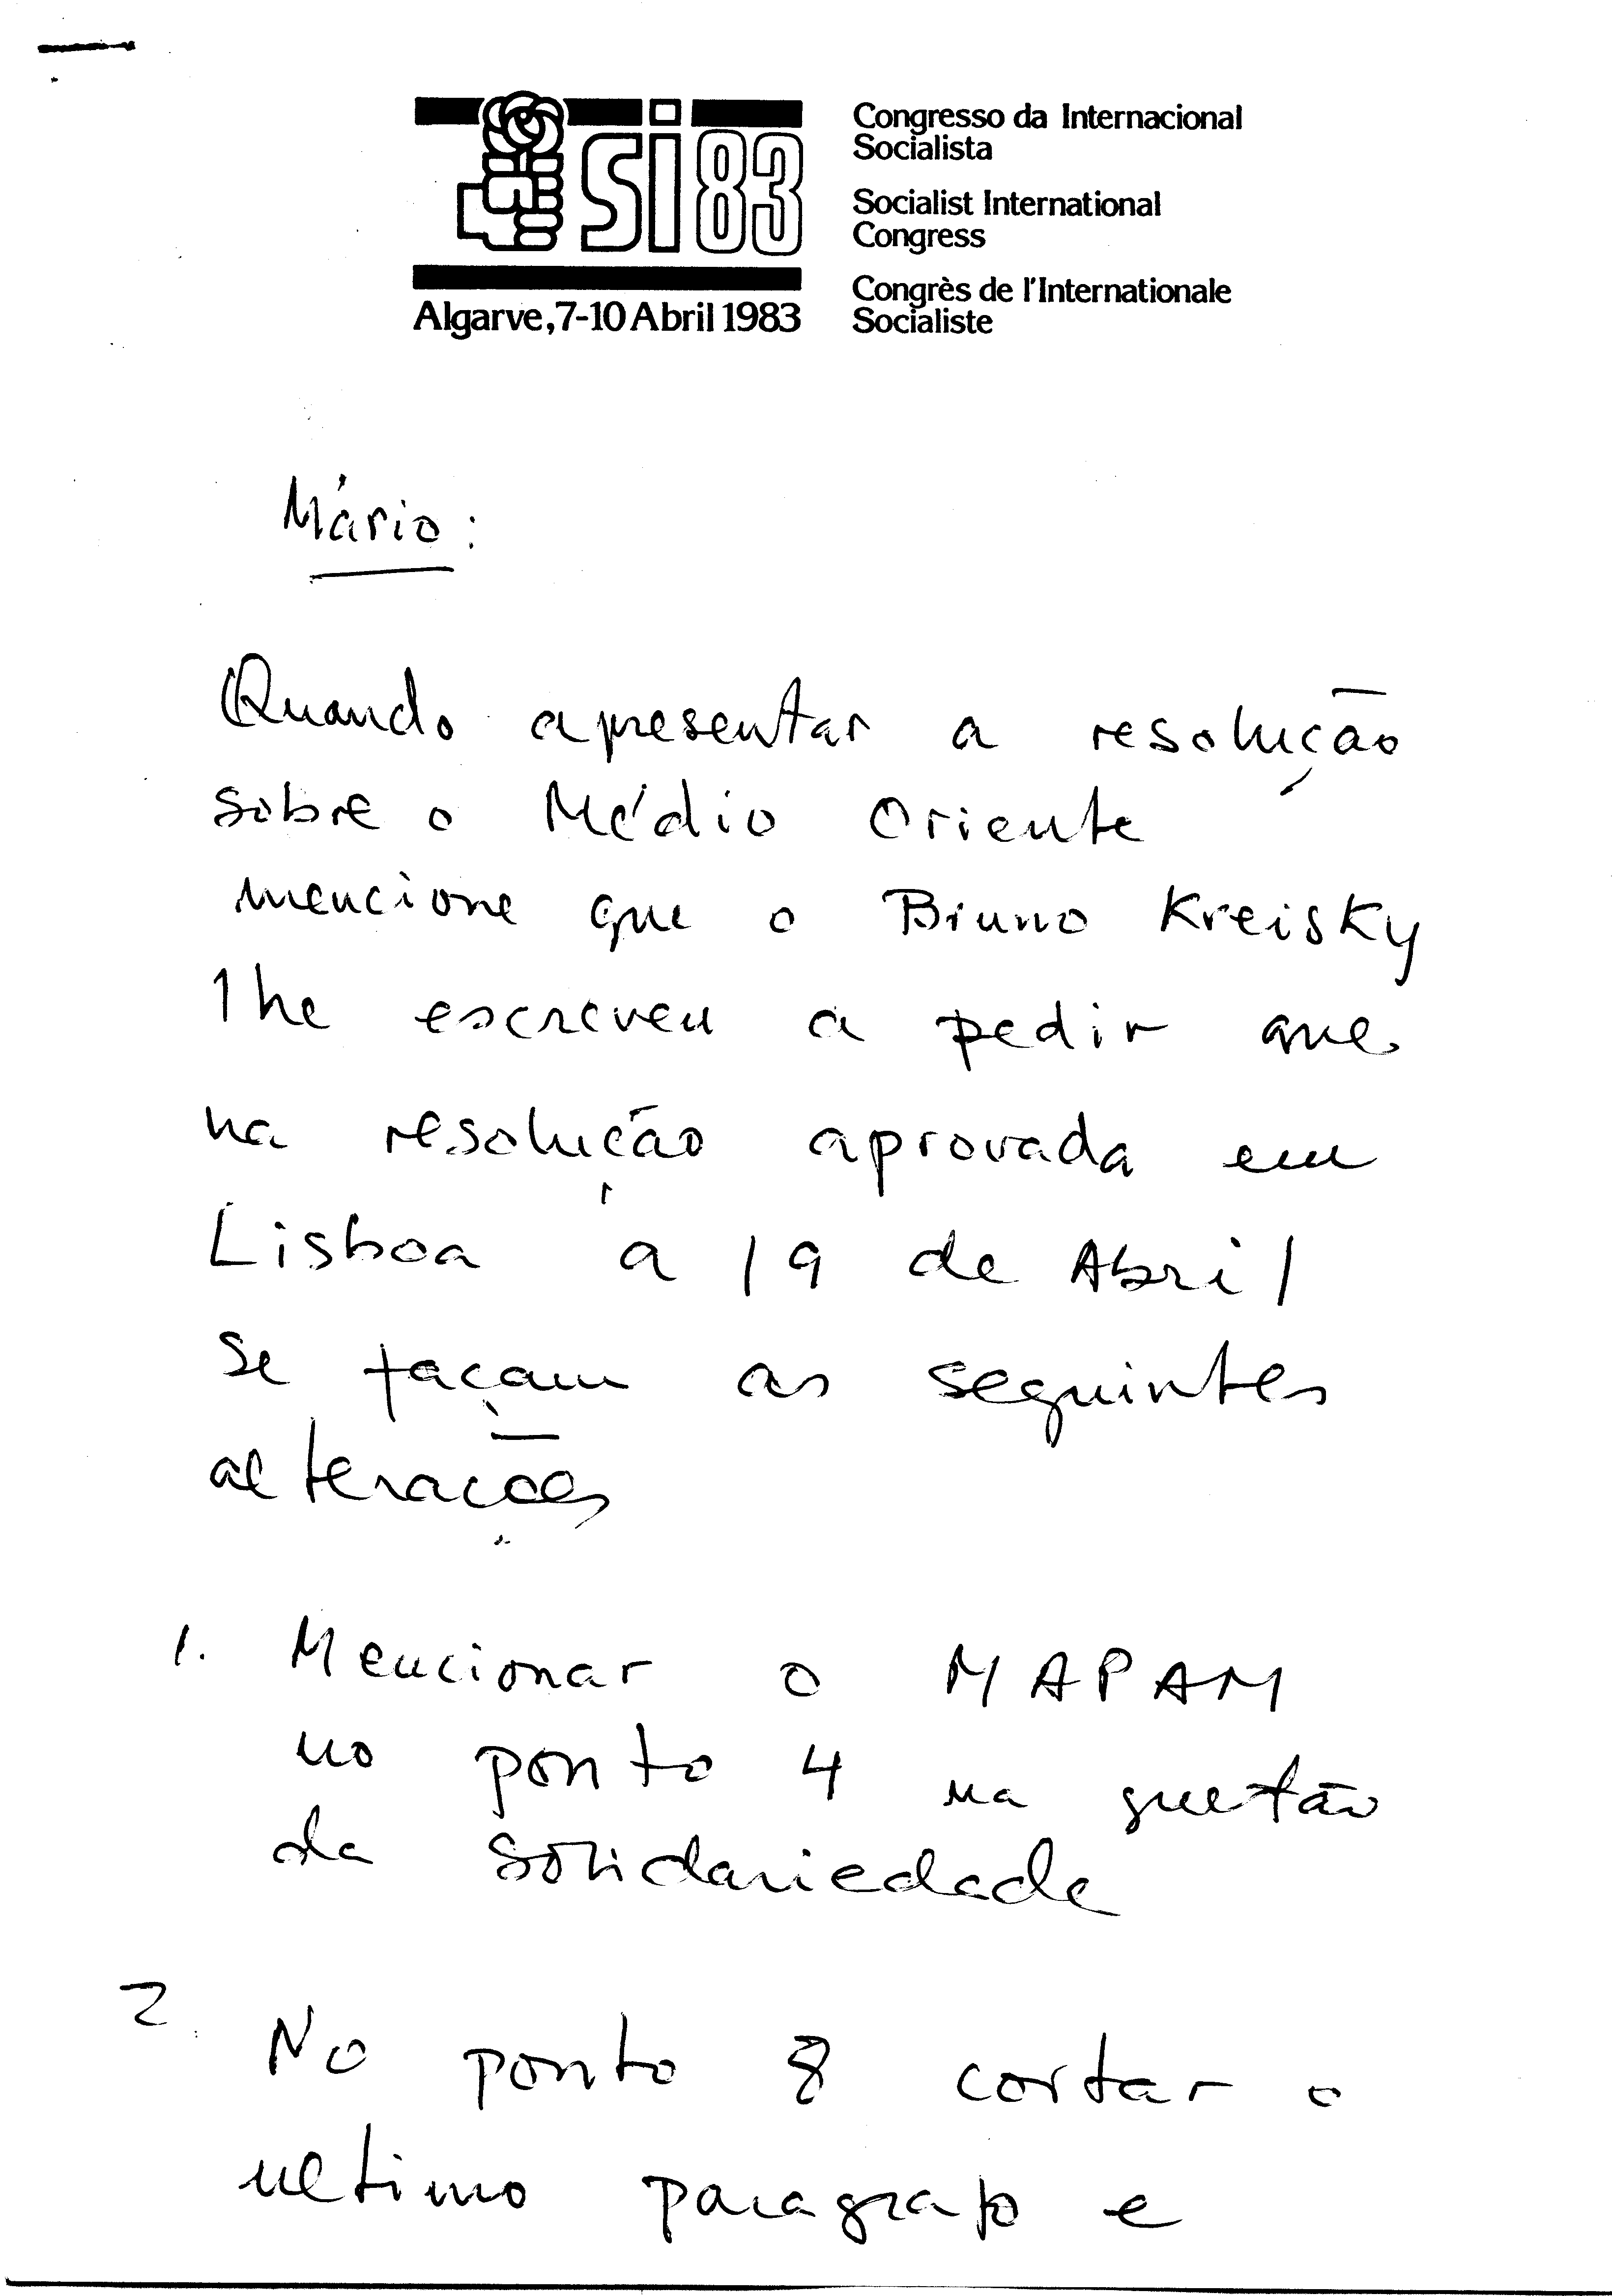 si83
Algarve, 7-10 Abril 1983
Congresso da Internacional
Socialista
Socialist International
Congress
Congrès de l'Internationale
Socialiste
Mário:
Quando apresentar a resolução
sobre o Médio Oriente
mencione que o Bruno Kreisky
lhe escreveu a pedir que
na resolução aprovada em
Lisboa a 19 de Abril
se façam as seguintes
alterações
1. Mencionar o MAPAM
no ponto 4 na questão
da solidariedade
2. No ponto 8 cortar o
ultimo paragrafo e